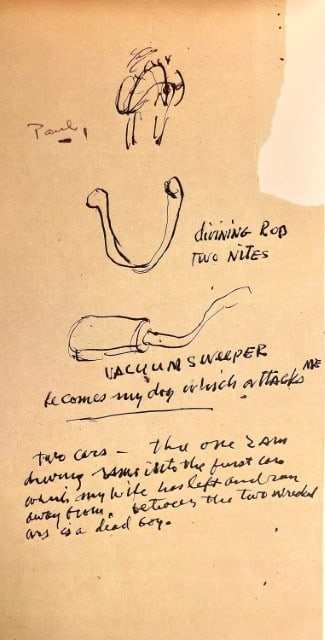 Paul,
divining Rod
Two Nites
VACUUM SWEEPER
becomes my dog which attacks ME
Two cars - The one I am
driving rams into the first car
which my wife has left and ran
away from. between the two wrecked
cars is a dead boy.